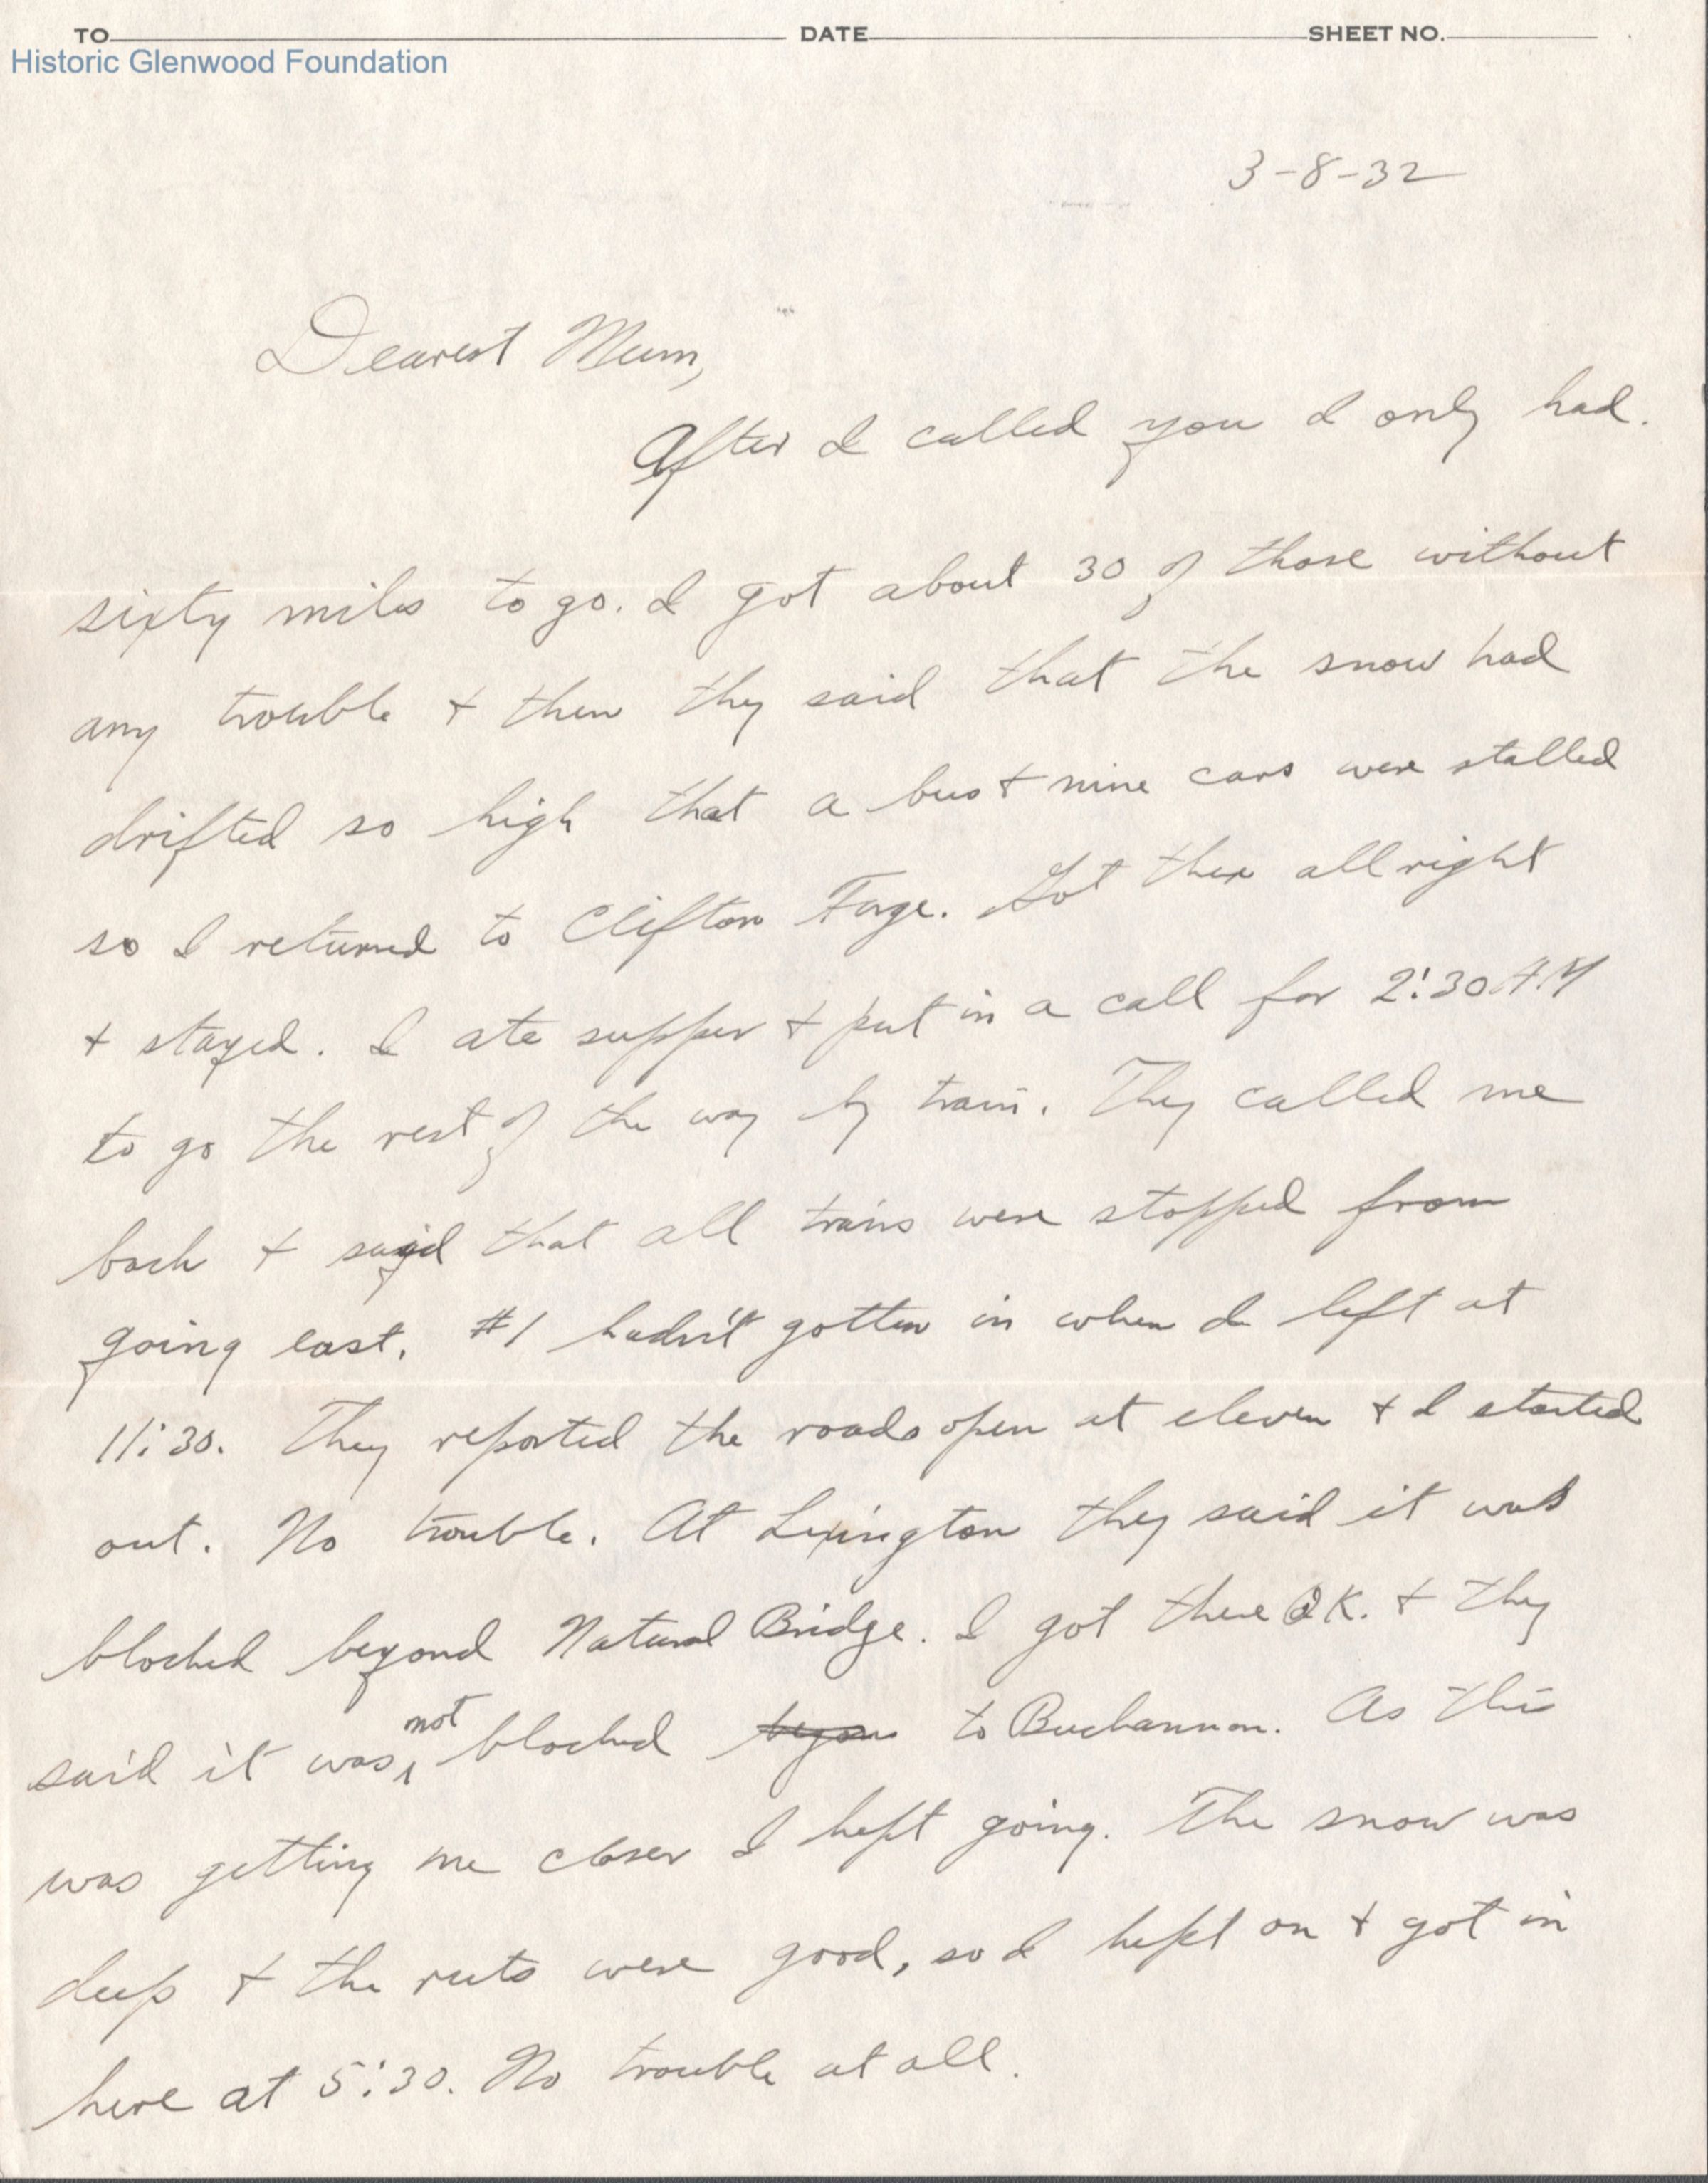 TO DATE SHEET NO.
Historic Glenwood Foundation
3-8-32
Dearest Mum,
After I called you I only had
sixty miles to go. I got about 30 of those without
any trouble + then they said that the snow had
drifted so high that a bus + nine cars were stalled
so I returned to Clifton Forge. Got there allright
+ stayed. I ate supper + put in a call for 2:30 AM
to go the rest of the way by train. They called me
back + said that all trains were stopped from
going east. #1 hadn't gotten in when I left at
11:30. They reported the roads open at eleven + I started
out. No trouble. At Lexington they said it was
blocked beyond Natural Bridge. I got there O.K. + they
said it was not blocked to Buchannon. As this
was getting me closer I kept going. The snow was
deep + the ruts were good, so I kept on + got in
here at 5:30. No trouble at all.